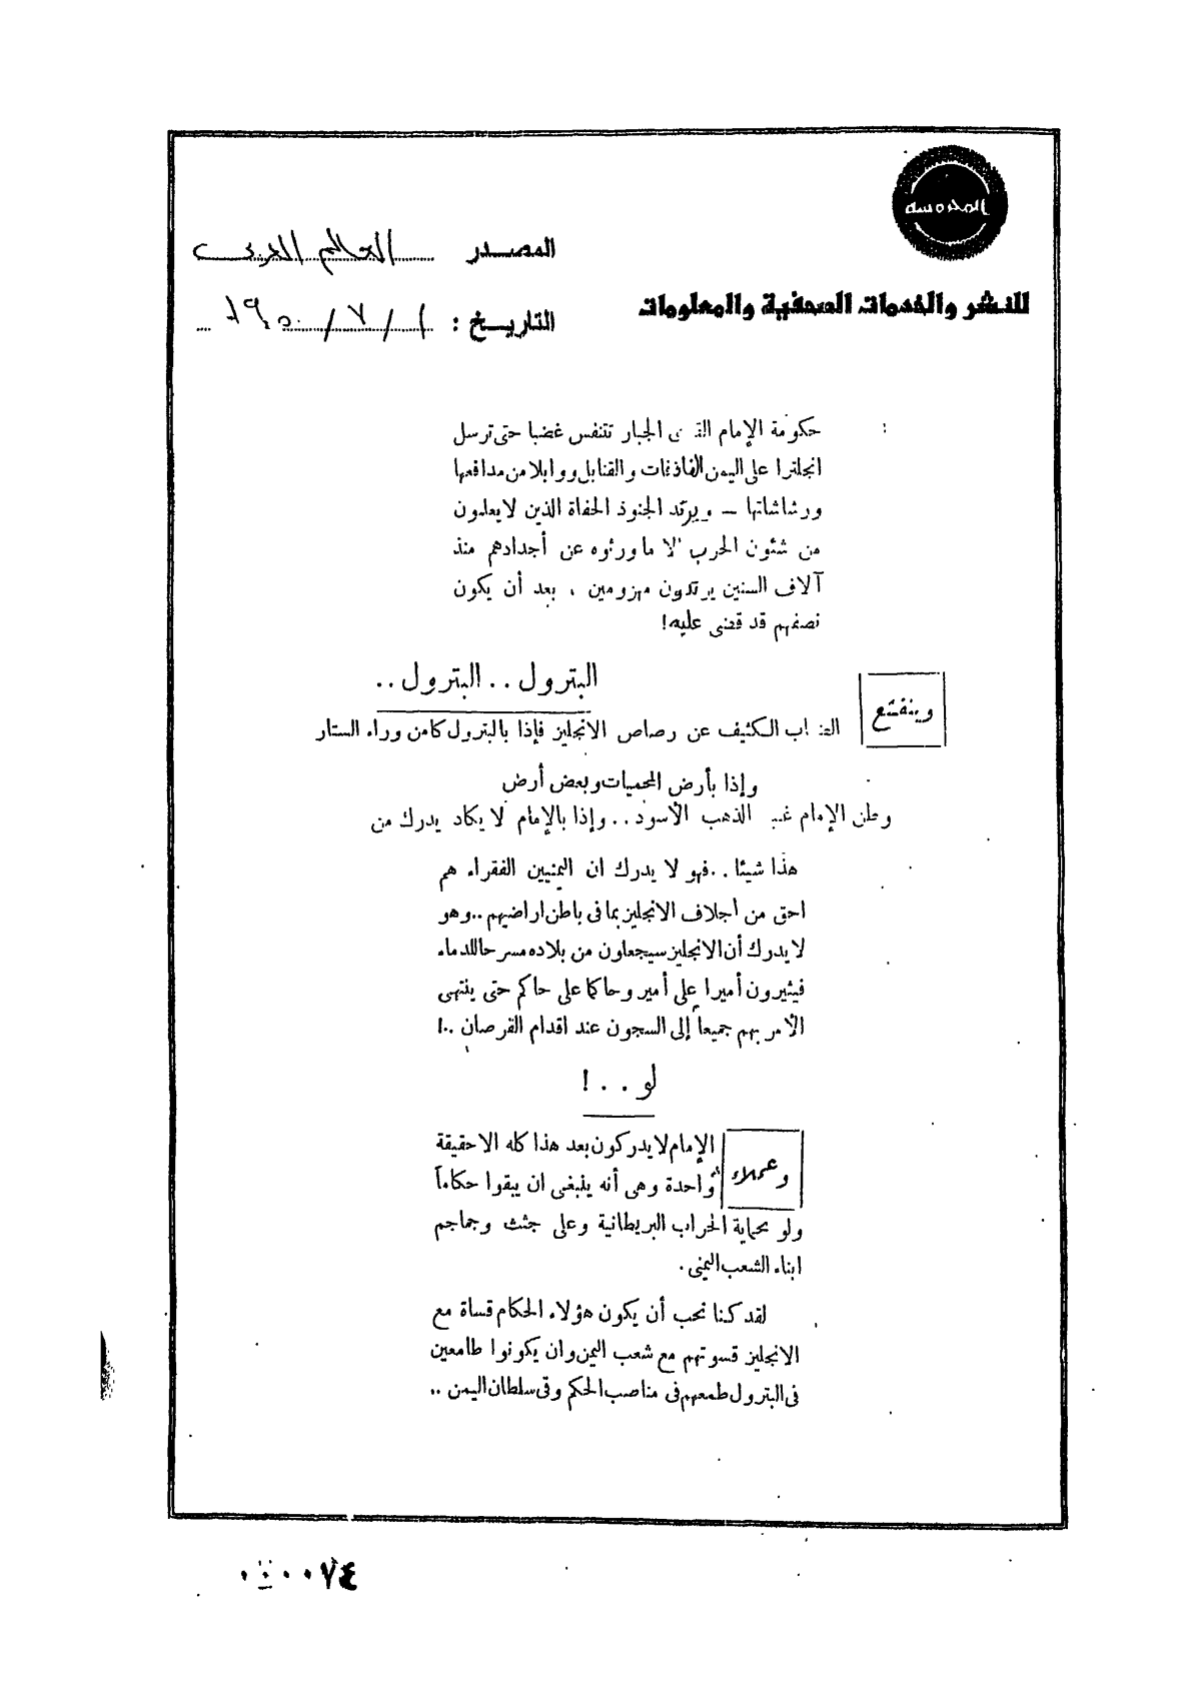 المحروسه
للنشر والخدمات الصحفية والمعلومات
المصدر العالم العربى
التاريخ : ١ / ٧ / ١٩٥٠
حكومة الإمام الجبار تتنفس غضبا حتى ترسل
انجلترا على اليمن القاذفات والقنابل ووابلا من مدافعها
ورشاشاتها — ويرتد الجنوذ الحفاة الذين لا يعلمون
من شئون الحرب الا ما ورثوه عن أجدادهم منذ
آلاف السنين يرتدون مهزومين ، بعد أن يكون
نصفهم قد قضى عليه!
البترول .. البترول ..
وينقشع
الكثيف عن رصاص الانجليز فإذا بالبترول كامن وراء الستار
وإذا بأرض المحميات وبعض أرض
وطن الإمام الذهب الأسود .. وإذا بالإمام لا يكاد يدرك من
هذا شيئا .. فهو لا يدرك ان اليمنيين الفقراء هم
احق من أجلاف الانجليز بما فى باطن اراضيهم .. وهو
لا يدرك أن الانجليز سيجعلون من بلاده مسرحا للدماء
فيثيرون أميرا على أمير وحاكما على حاكم حتى ينتهى
الأمر بهم جميعاً إلى السجون عند اقدام القرصان ..!
لو . . !
وعملاء
الإمام لا يدركون بعد هذا كله الا حقيقة
واحدة وهى أنه ينبغى ان يبقوا حكاماً
ولو بحماية الحراب البريطانية وعلى جثث وجماجم
ابناء الشعب اليمنى .
لقد كنا نحب أن يكون هؤلاء الحكام قساة مع
الانجليز قسوتهم مع شعب اليمن وان يكونوا طامعين
فى البترول طمعهم فى مناصب الحكم وفى سلطان اليمن ..